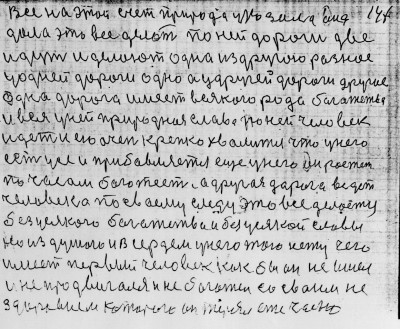 Все на этот счет природа уложила она 144
дала это все делат по ней дороги две
идут и делают одна из другого разное
у одней дороги одно а у другей дороги другое
Одна дорога имеет всякого рода багажества
и вся у ней природная слава по ней человек
идет и его очен крепко хвалит что у него
есть уже и прибавляется еще у него он растет
по часам богатеет. а другая дорога ведет
человека по своему следу это все делает у
безусякого богатества и без усякой славы
но из думого и в сердем у него того нету чего
имеет первый человек как бы он не имел
и не продвигался и не богател со своим не
здоровием которого он терял ете часто